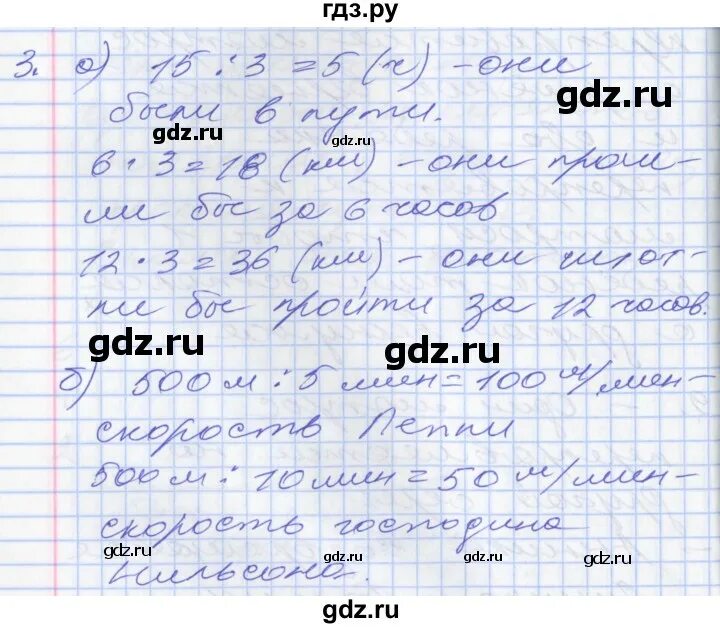 гдз.ру
3. а) 15 : 3 = 5 (ч) – они
были в пути.
gdz.ru
gdz.ru
gdz.ru
6 · 3 = 18 (км) – они прош-
ли бы за 6 часов
12 · 3 = 36 (км) – они смог-
ли бы пройти за 12 часов.
gdz.ru
gdz.ru
б) 500 м : 5 мин = 100 м/мин –
скорость Пеппи
500 м : 10 мин = 50 м/мин –
скорость господина
gdz.ru
gdz.ru
gdz.ru
Нильсона.
gdz.ru